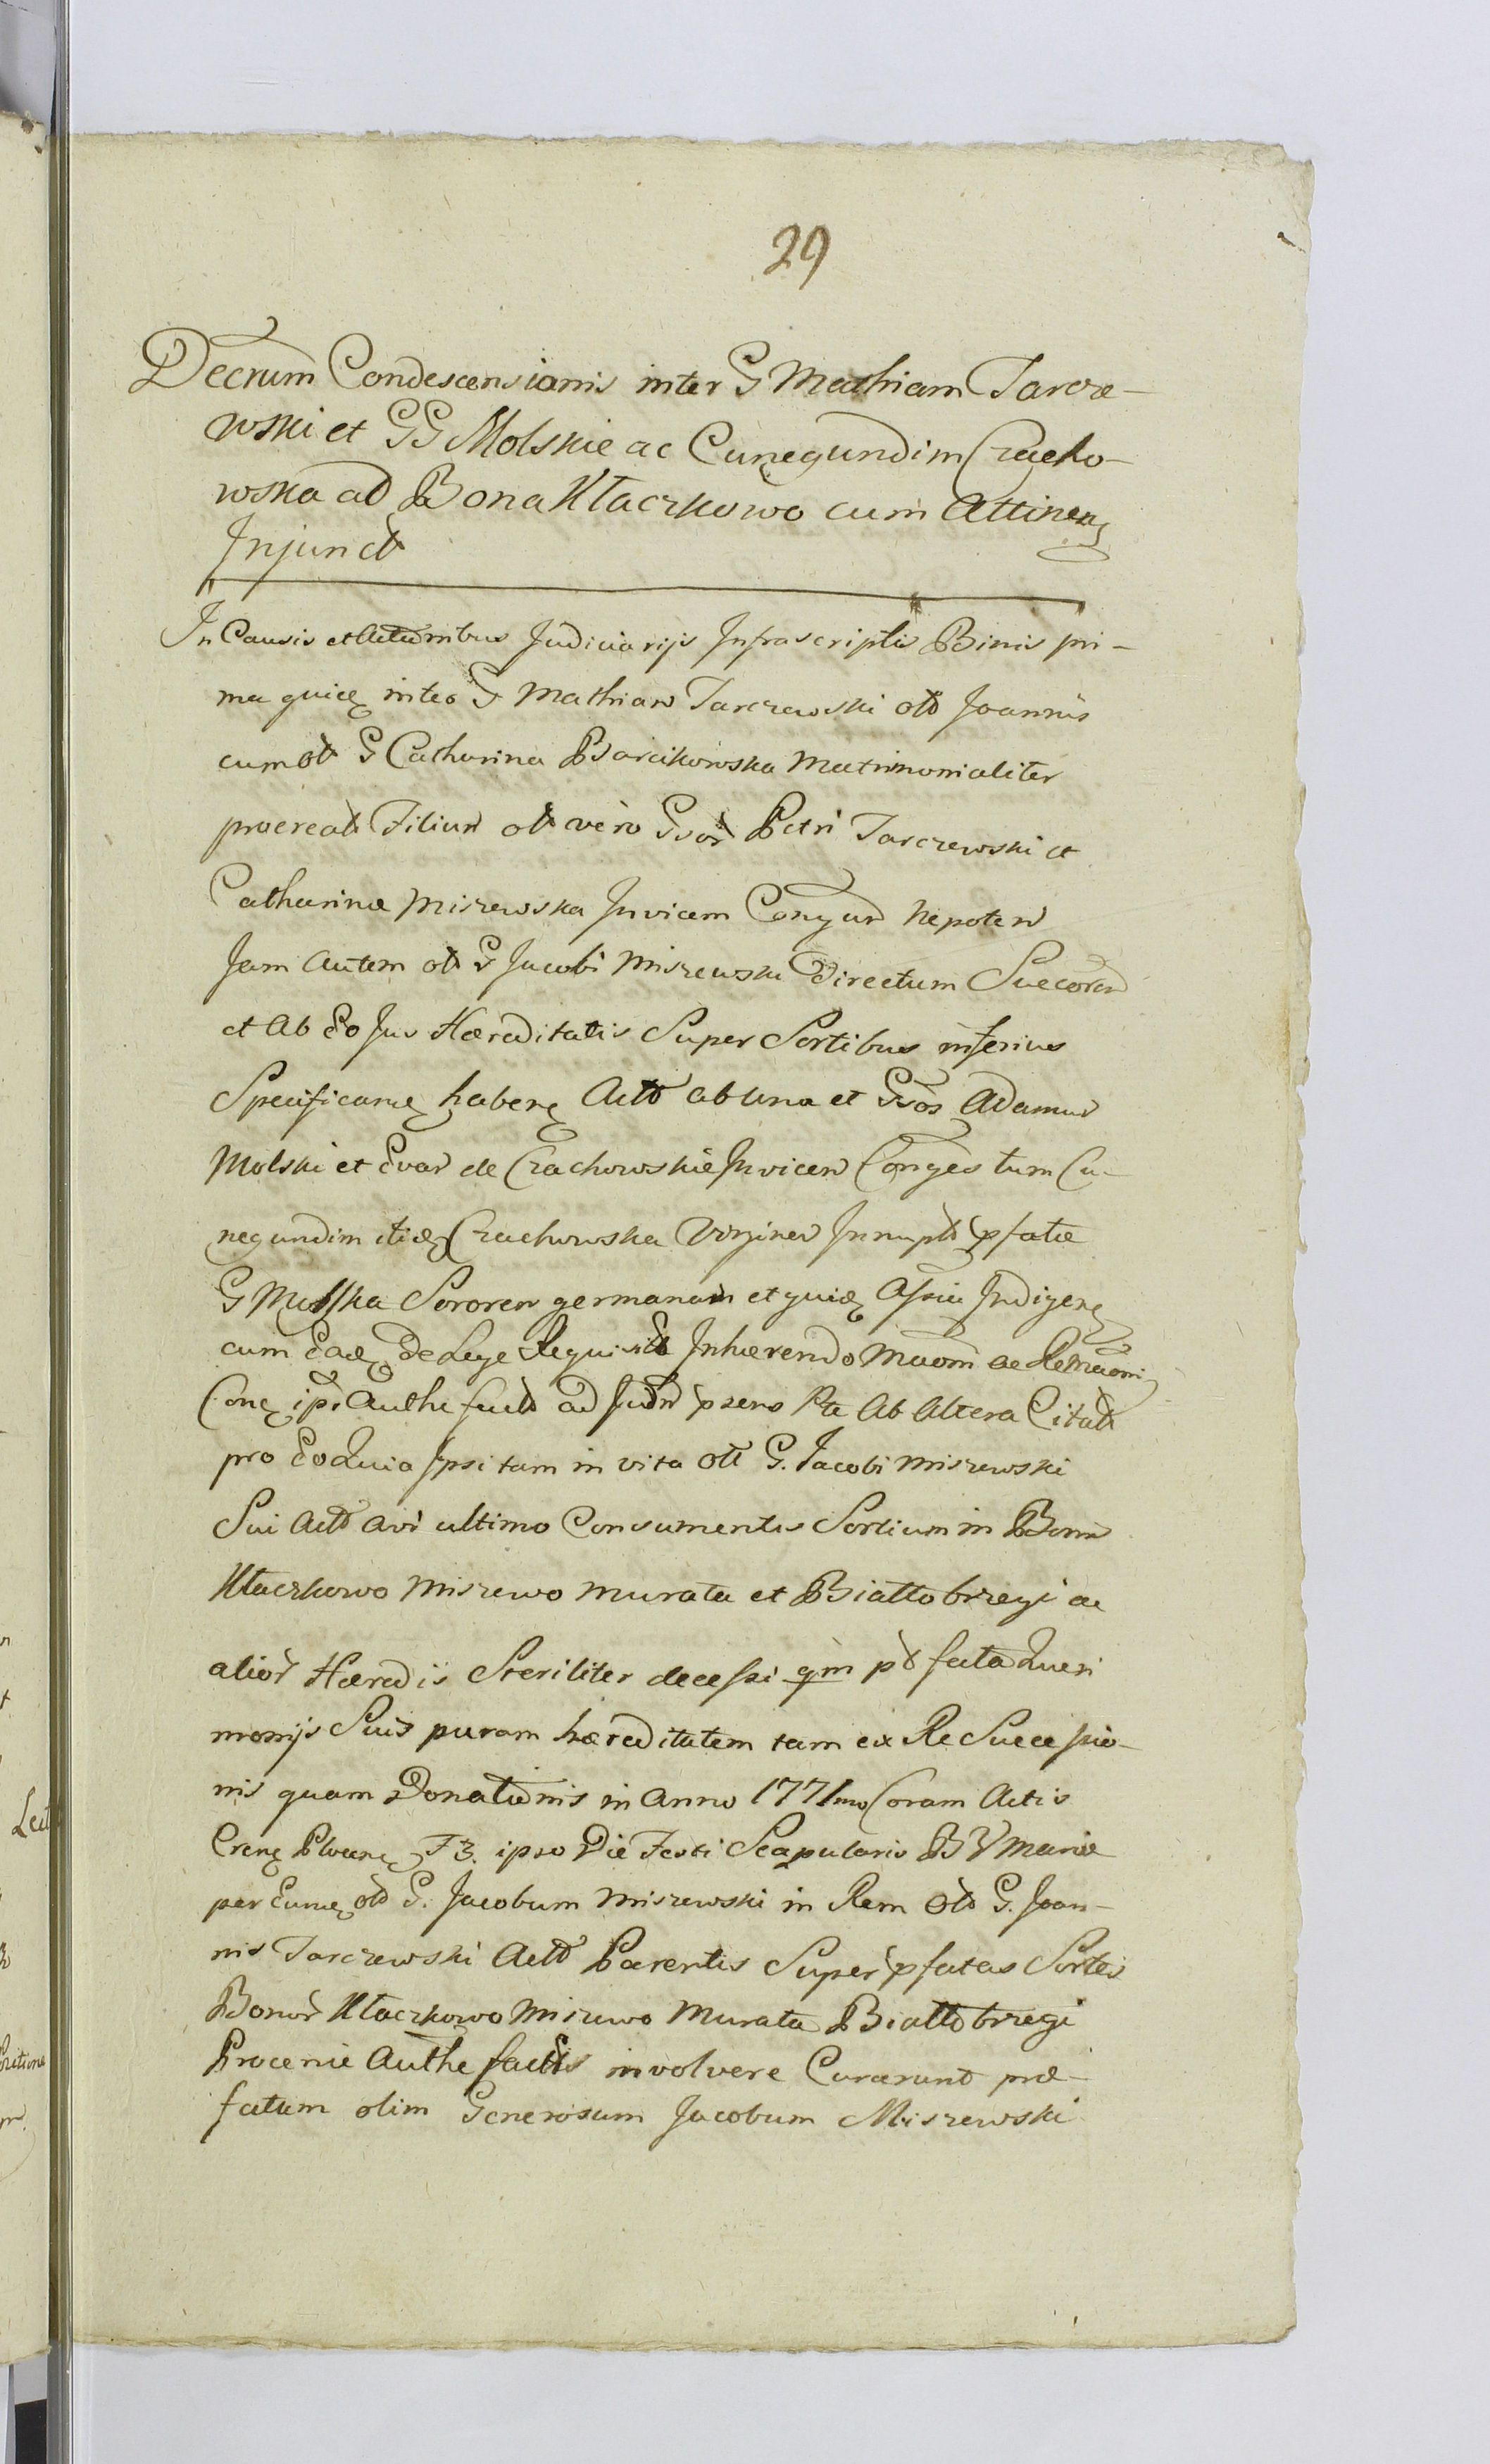 29
Decrum Condescensionis inter G Mathiam Tarcze-
wski et GG Molskie ac Cunegundim Czacho-
wska ad Bona Kłaczkowo cum Attinen
Injunct
In Causis et Actionibus Judiciarijs Infrascriptis Binis pri-
ma quidę inter G Mathiam Tarczewski olt Joannis
cum olt G Catharina Barcikowska Matrimonialiter
procreati Filium olt vero Gsor Petri Tarczewski et
Catharinæ Miszewska Invicem Conjum Nepotem
Jam Autem olt G Jacobi Miszewski Directum Succorem
et Ab Eo Jus Hæreditatis Super Sortibus inferius
Specificamę habenę Actt ab una et Gsos Adamum
Molski et Evam de Czachowskie Invicem Conjges tum Cu-
negundim itidę Czachowska Virginem Innupt pfatæ
G Molska Sororem germanam et quidę Assia Indigenę
cum Eadę De Lege Requisitt Inhærendo Maom ac Remaoni
Conę ipi Authe factt ad Judm psens Pte Ab Altera Citatt
pro Eo Quia Ipsi tam in vita olt G. Jacobi Miszewski
Sui Actt Avi ultimo Consumentis Sortium in Bonis
Kłaczkowo Miszewo Murata et Białtobrzegi ac
alior Hæredis Steriliter decessi qm pt fata Queri
monijs Suis puram hæreditatem tam ex Re Successio-
nis quam Donationis in Anno 1771mo Coram Actis
Crenę Plocenę F 3. ipso Die Festi Scapularis B V Mariæ
per Eumę olt G. Jacobum Miszewski in Rem Olt G. Joan-
nis Tarczewski Actt Parentis Super pfatas Sortes
Bonor Kłaczkowo Miszewo Murata Białtobrzegi
Procenie Authe factis involvere Curarunt præ-
fatum olim Generosum Jacobum Miszewski